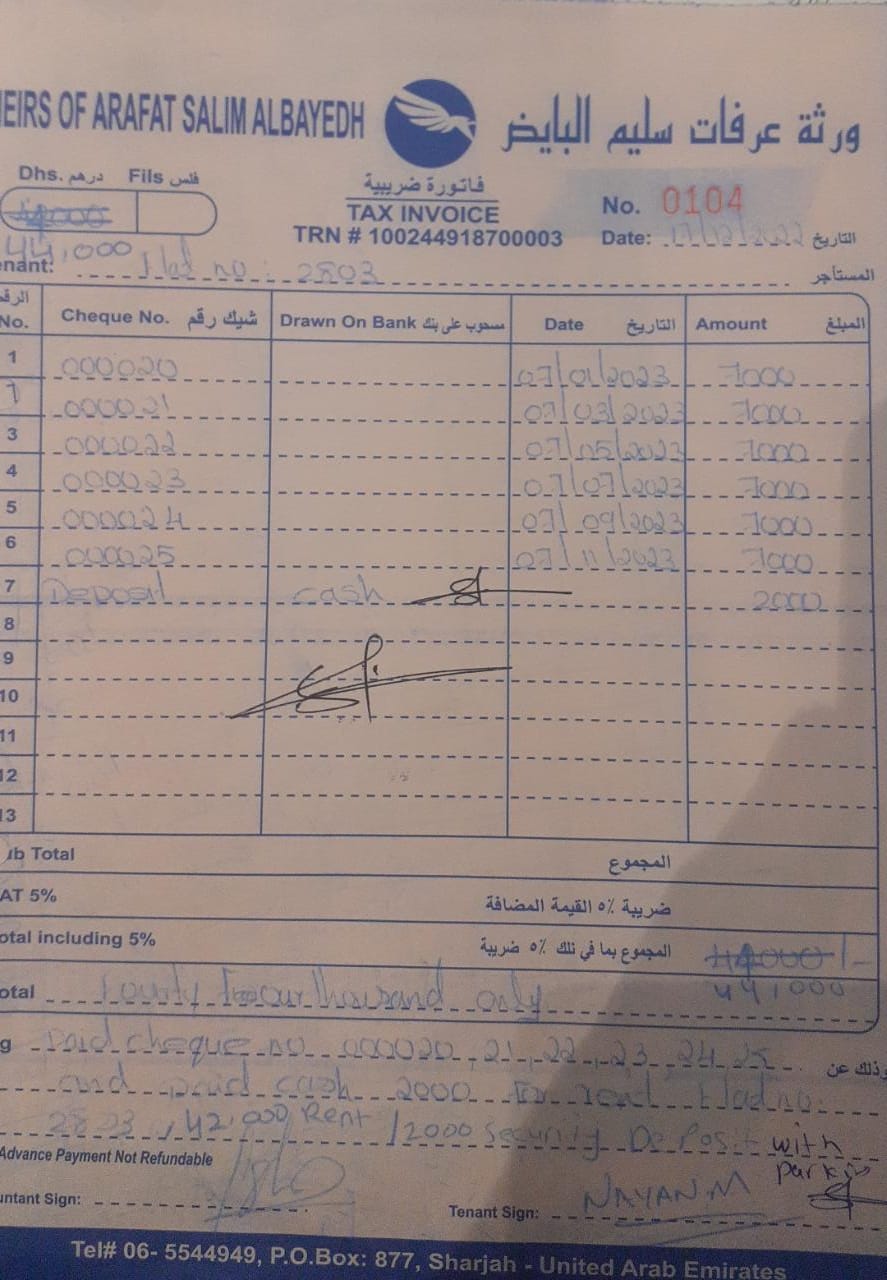 HEIRS OF ARAFAT SALIM ALBAYEDH
ورثة عرفات سليم البايض
Dhs. درهم Fils فلس
فاتورة ضريبية
TAX INVOICE
TRN # 100244918700003
No. 0104
Date: 17/12/2022 التاريخ
44,000
enant: Flat no : 2803 المستأجر
الرقم No. Cheque No. شيك رقم Drawn On Bank مسحوب على بنك Date التاريخ Amount المبلغ
1 000020 07/01/2023 7000
000021 07/03/2023 7000
3 000022 07/05/2023 7000
4 000023 07/07/2023 7000
5 000024 07/09/2023 7000
6 000025 07/11/2023 7000
7 Deposit cash 2000
8
9
10
11
12
13
ub Total المجموع
AT 5% ضريبة ٥٪ القيمة المضافة
otal including 5% المجموع بما في ذلك ٥٪ ضريبة
44,000
otal Fourty Four thousand only
g Paid cheque no 000020, 21, 22, 23, 24, 25 وذلك عن
and paid cash 2000 for rent Flad no.
2803, 42,000 Rent / 2000 Security DePosit with
parkin
Advance Payment Not Refundable
untant Sign:
Tenant Sign: NAYAN.M
Tel# 06- 5544949, P.O.Box: 877, Sharjah - United Arab Emirates